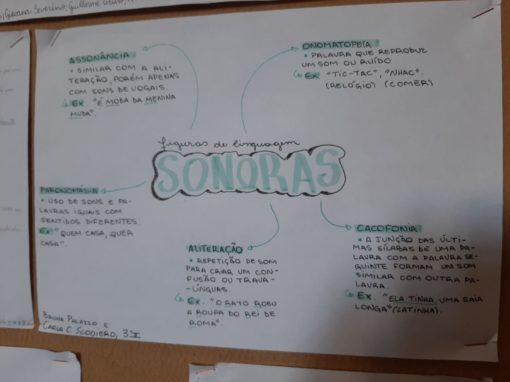 ASSONÂNCIA
• SIMILAR COM A ALI-
TERAÇÃO, PORÉM APENAS
COM SONS DE VOGAIS.
Ex "É MODA DA MENINA
MUDA".
ONOMATOPEIA
• PALAVRA QUE REPRODUZ
UM SOM OU RUÍDO
Ex "TIC-TAC", "NHAC"
(RELÓGIO) (COMER)
figuras de linguagem
SONORAS
PARONOMÁSIA
• USO DE SONS E PA-
LAVRAS IGUAIS COM
SENTIDOS DIFERENTES
Ex "QUEM CASA, QUER
CASA".
ALITERAÇÃO
• REPETIÇÃO DE SOM
PARA CRIAR UM CON-
FUSÃO OU TRAVA-
LÍNGUAS.
Ex. "O RATO ROEU
A ROUPA DO REI DE
ROMA".
CACOFONIA
• A JUNÇÃO DAS ÚLTI-
MAS SÍLABAS DE UMA PA-
LAVRA COM A PALAVRA SE-
GUINTE FORMAM UM SOM
SIMILAR COM OUTRA PA-
LAVRA.
Ex. "ELA TINHA UMA SAIA
LONGA" (LATINHA).
BRUNA PALAZZO E
CARLA C. SCODIERO, 3ºI